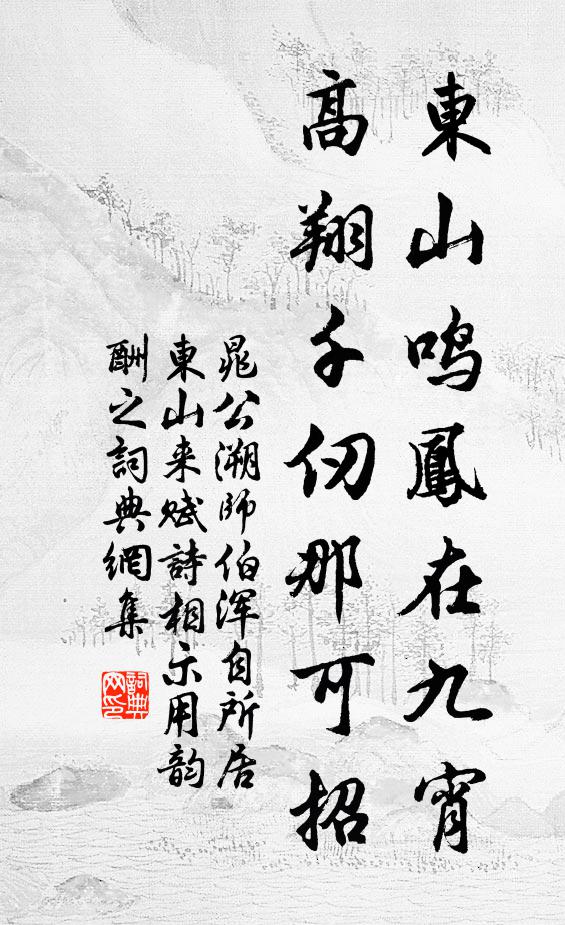 東山鳴鳳在九宵
高翔千仞那可招
晁公溯師伯渾自所居
東山来賦詩相示用韵
酬之詞典網集
詞典网印